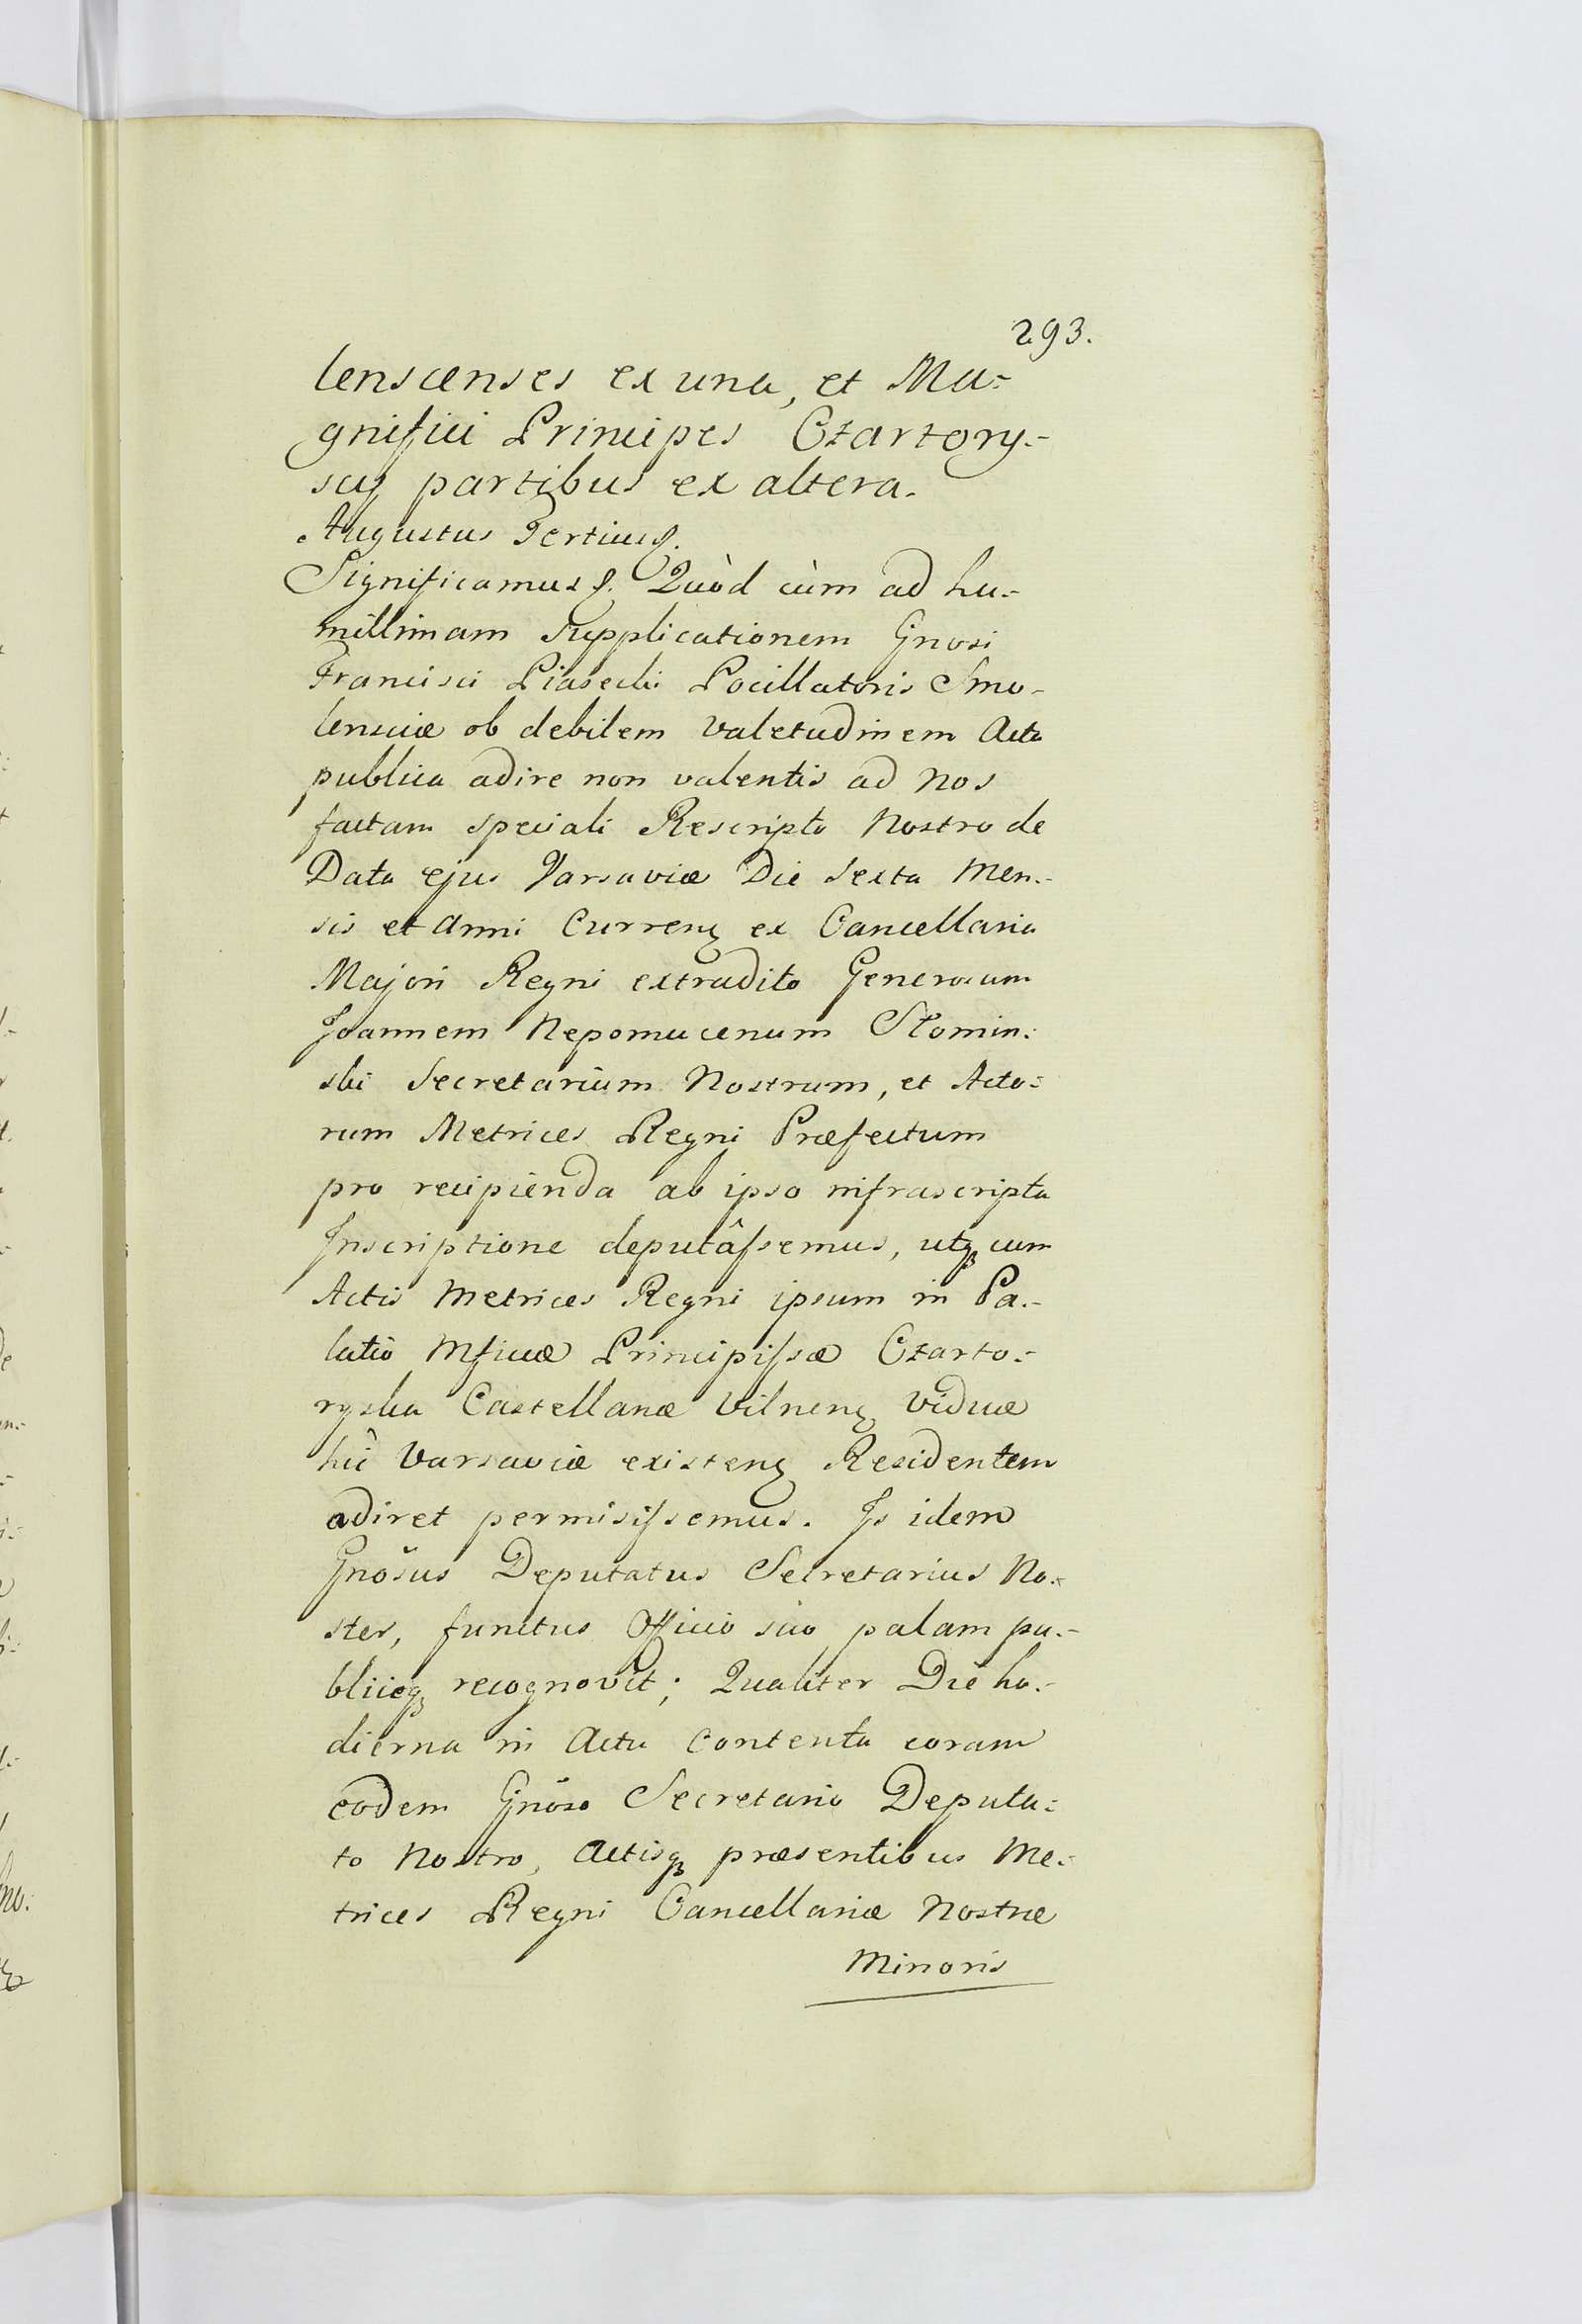 293.
lenscenses ex una, et Ma-
gnifici Principes Czartory-
scy partibus ex altera.
Augustus Tertius &.
Significamus &. Quòd cùm ad hu-
millimam supplicationem Gnosi
Francisci Piasecki Pocillatoris Smo-
lensciæ ob debilem valetudinem Acta
publica adire non valentis ad Nos
factam speciali Rescripto Nostro de
Data ejus Varsaviæ Die sexta Men-
sis et Anni Curren ex Cancellaria
Majori Regni extradito Generosum
Joannem Nepomucenum Słomin-
ski Secretarium Nostrum, et Acto-
rum Metrices Regni Præfectum
pro recipienda ab ipso infrascripta
Inscriptione deputâssemus, utq cum
Actis Metrices Regni ipsum in Pa-
latio Mficæ Principissæ Czarto-
ryska Castellanæ Vilnen Viduæ
hîc Varsaviæ existen Residentem
adiret permisissemus. Is idem
Gnosus Deputatus Secretarius No-
ster, functus Officio suo palam pu-
bliceq recognovit; Qualiter Die ho-
dierna in Actu contenta coram
eodem Gnoso Secretario Deputa-
to Nostro, Actisq præsentibus Me-
trices Regni Cancellariæ Nostræ
Minoris